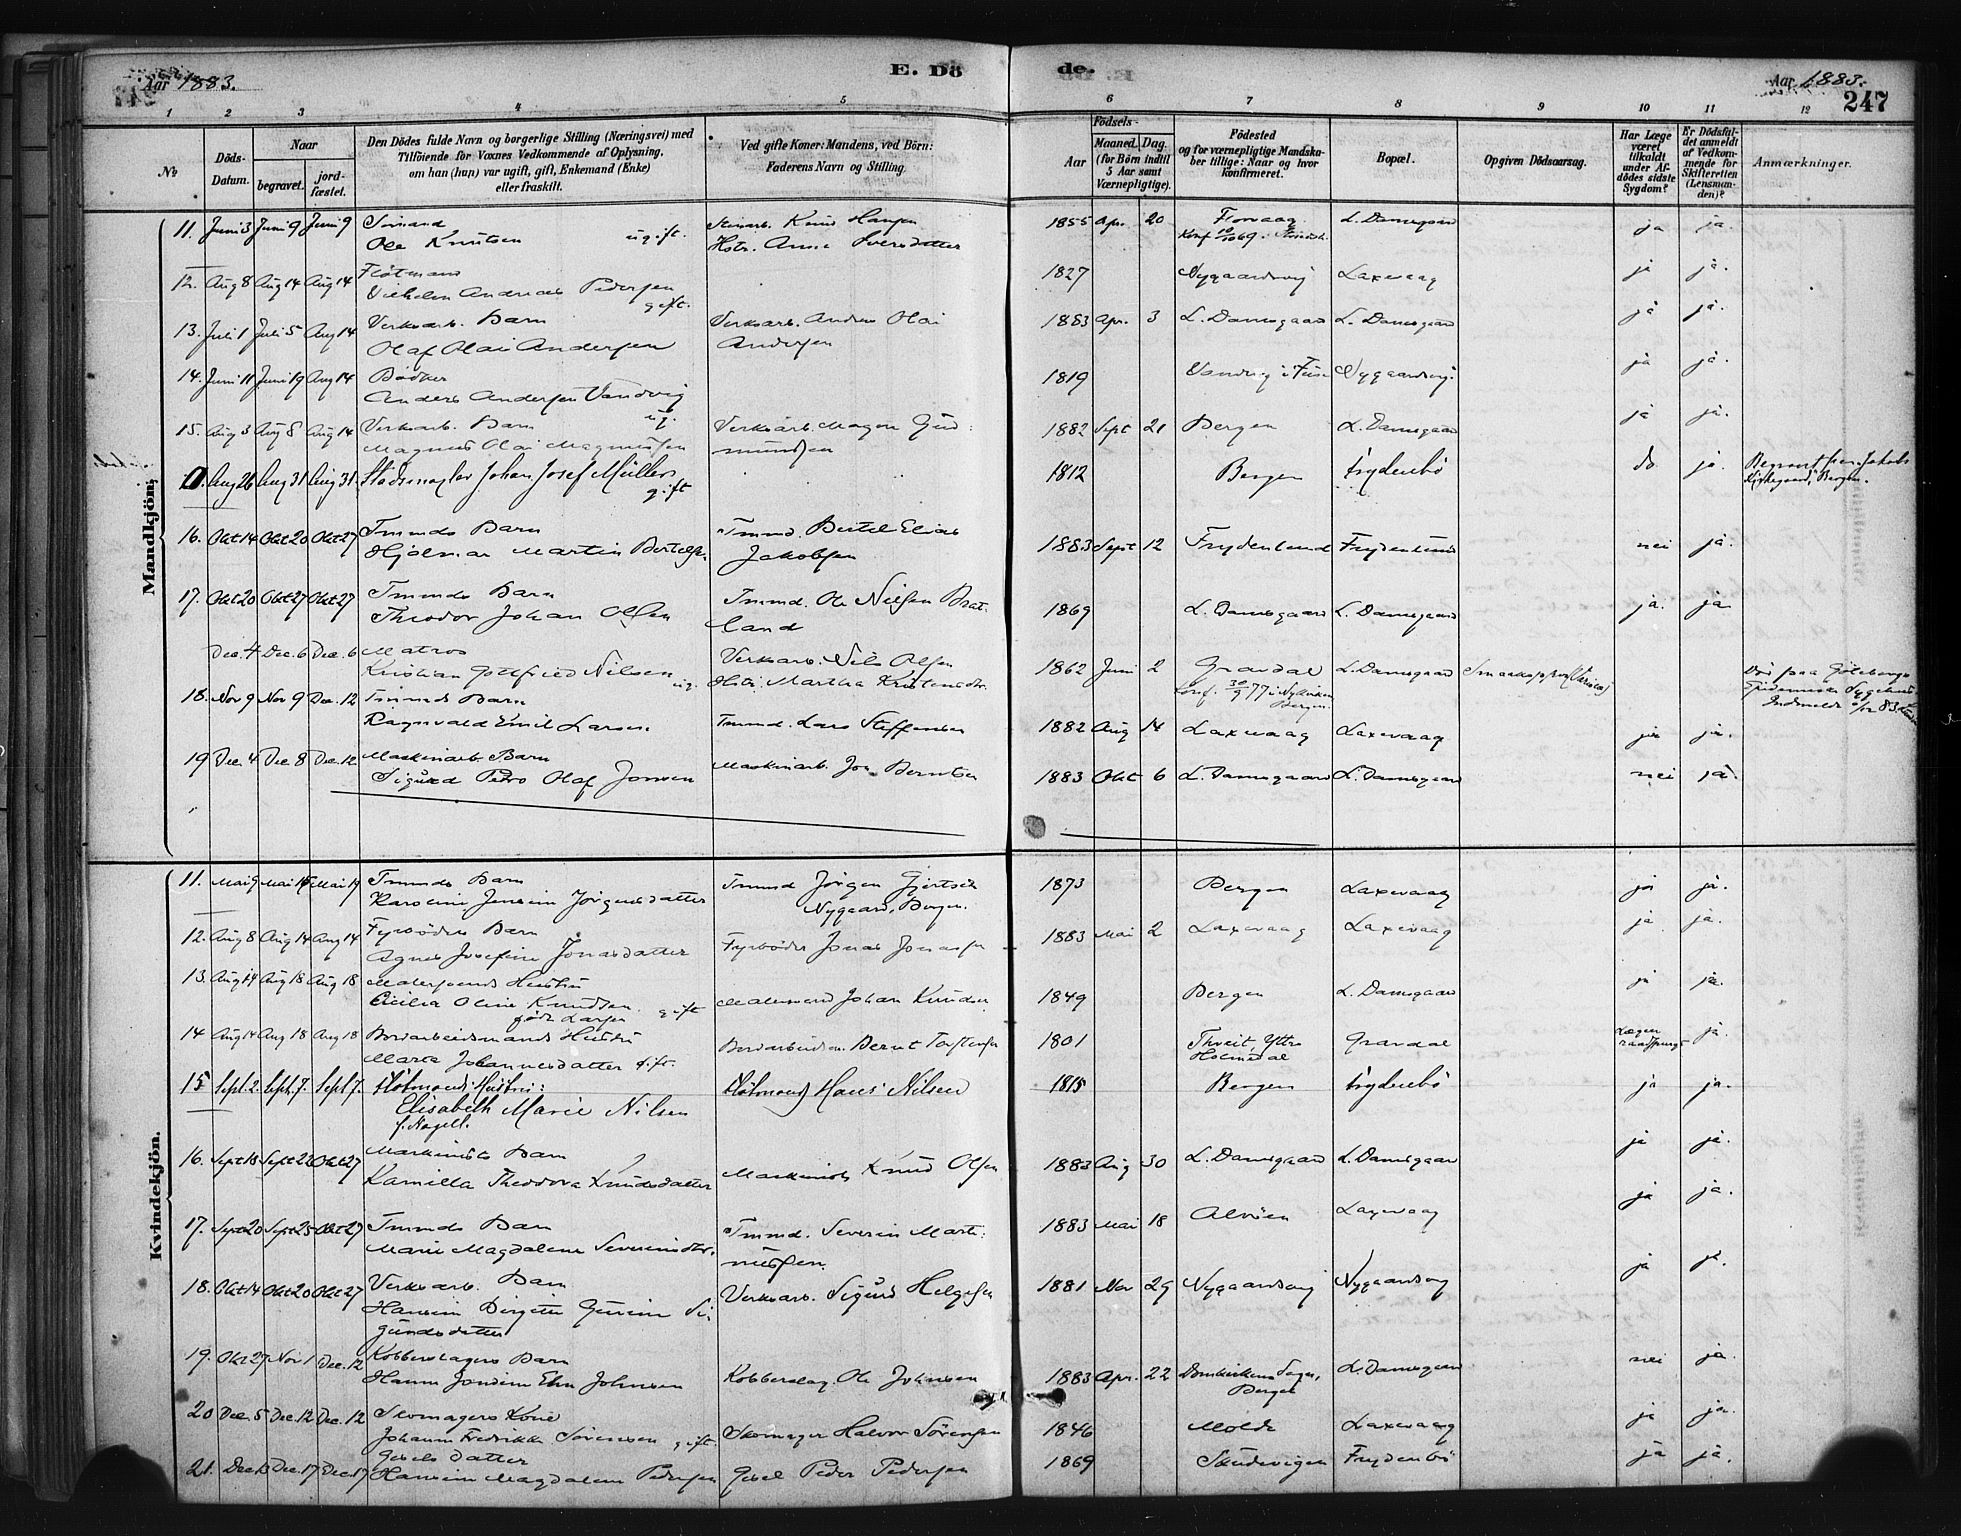 Aar 1883.
E. Dö
de.
Aar 1883.
247
1 2 3 4 5 6 7 8 9 10 11 12
No
Döds-
Datum.
Naar
begravet.
jord-
fæstet.
Den Dödes fulde Navn og borgerlige Stilling (Næringsvei) med
Tilföiende for Voxnes Vedkommende af Oplysning,
om han (hun) var ugift, gift, Enkemand (Enke)
eller fraskilt.
Ved gifte Koner: Mandens, ved Börn:
Faderens Navn og Stilling.
Födsels-
Aar
Maaned. Dag.
(for Börn indtil
5 Aar samt
Værnepligtige).
Födested
og for værnepligtige Mandska-
ber tillige: Naar og hvor
konfirmeret.
Bopæl.
Opgiven Dödsaarsag.
Har Læge
været
tilkaldt
under Af-
dödes sidste
Sygdom?
Er Dödsfal-
det anmeldt
af Vedkom-
mende for
Skifteretten
(Lensman-
den)?
Anmærkninger.
Mandkjön.
11. Juni 3 Juni 9 Juni 9 Sömand
Ole Knutsen ugift. Stenarb. Knud Hansen
Hstr. Anna Iversdatter 1855 Apr. 20 Florvaag L. Damsgaard ja ja.
12. Aug 8 Aug 14 Aug 14 Flötmand
Vilhelm Andreas Pedersen gift. 1827 Nygaardsvig Laxevaag ja ja.
13. Juli 1 Juli 5 Aug 14 Verksarb. Barn
Olaf Olai Andersen Verksarb. Andreas Olai
Andersen 1883 Apr. 3 L. Damsgaard L. Damsgaard ja ja.
14. Juni 11 Juni 19 Aug 14 Bödker
Anders Andersen Vandvig ug. 1819 Vandvig i Fuse Nygaardsvig ja ja.
15. Aug 3 Aug 8 Aug 14 Verksarb. Barn
Magnus Olai Magnussen Verksarb. Magne Gud-
mundsen 1882 Sept 21 Bergen L. Damsgaard ja ja.
0. Aug 26 Aug 31 Aug 31 Stadsmægler Johan Josef Müller gift 1812 Bergen Frydenbö do ja. Begravet paa Jakobs
Kirkegaard, Bergen.
16. Okt 14 Okt 20 Okt 27 Tmmds Barn
Hjalmar Martin Bertelsen Tmmd. Bertel Elias
Jakobsen 1883 Sept 12 Frydenlund Frydenlund nei ja.
17. Okt 20 Okt 27 Okt 27 Tmmds Barn
Theodor Johan Olsen Tmmd. Ole Nielsen Brat-
land 1869 L. Damsgaard L. Damsgaard ja. ja.
Dec. 4 Dec. 6 Dec. 6 Matros
Kristian Gottfried Nilsen ug. Verksarb. Nils Olsen
Hstr. Martha Kristensdtr. 1862 Juni 2 Gravdal
Konf. 30/9 77 i Nykirken
Bergen. L. Damsgaard Smaakopper (Variola) Död paa Göteborgs
Epidemiske Sygehus
18. Nov 9 Nov 9 Dec. 12 Tmmds Barn
Ragnvald Emil Larsen. Tmmd. Lars Steffensen 1882 Aug 14 Laxevaag Laxevaag ja ja.
19 Dec. 4 Dec 8 Dec. 12 Maskinarb. Barn
Sigurd Petro Olaf Jonsen Maskinarb. Jon Berntsen 1883 Okt 6 L. Damsgaard L. Damsgaard nei ja.
Kvindekjön.
11. Mai 9 Mai Mai 19 Tmmds Barn
Karoline Jensine Jörgensdatter Tmmd Jörgen Gjertsen
Nygaard, Bergen. 1873 Bergen Laxevaag ja ja.
12. Aug 8 Aug 14 Aug 14 Fyrböders Barn
Agnes Josefine Jonasdatter Fyrböder Jonas Jonassen 1883 Mai 2 Laxevaag Laxevaag ja ja.
13. Aug 14 Aug 18 Aug 18 Matersmands Hustru
Cicilia Oline Knudsen gift
födt Larsen Johan Knudsen 1849 Bergen L. Damsgaard ja ja.
14 Aug 14 Aug 18 Aug 18 Bordarbeidsmands Hustru
Marta Johannesdatter gift. Bordarbeidsm. Bernt Torstensen 1801 Tveit, Yttre
Holmedal Gravdal Lægen
raadspurgt ja.
15 Sept. 2. Sept. 7. Sept. 7. Flötmands Hustru:
Elisabeth Marie Nilsen
f. Nagell. Flötmand Hans Nilsen 1815 Bergen Frydenbö ja ja.
16. Sept 18 Sept 22 Okt 27 Maskinists Barn
Kamilla Theodora Knudsdatter Maskinist Knud Olsen 1883 Aug 30 L. Damsgaard L. Damsgaard ja ja.
17. Sept 20 Sept 25 Okt 27 Tmmds Barn
Marie Magdalene Severinsdtr. Tmmd. Severin Marti-
nussen. 1883 Mai 18 Alvöen Laxevaag ja ja.
18. Okt 14 Okt 20 Okt 27 Verksarb. Barn
Hansine Birgitte Gurine Si-
gurdsdatter Verksarb. Sigurd Helgesen 1881 Nov 29 Nygaardsvig Nygaardsvig ja ja.
19. Okt 27 Nov 1 Dec. 12 Kobberslagers Barn
Hanna Johnsen Kobberslag. Ole Johnsen 1883 Apr. 22 Domkirkens Sogn,
Bergen L. Damsgaard nei ja.
20 Dec. 5 Dec. 12 Dec. 12 Skomagers Kone
Johanne Fredrikke Sörensen gift. Skomager Halvor Sörensen 1846 Molde Laxevaag ja ja.
21. Dec. 13 Dec. 17 Dec. 17 Gjösels Datter
Hansine Magdalene Pedersen Peder Pedersen 1869 Sandvigen Frydenbö ja ja.